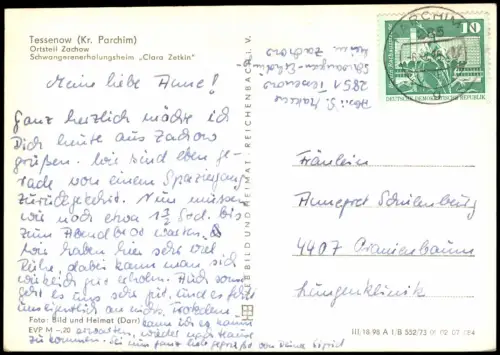 Tessenow (Kr. Parchim)
Ortsteil Zachow
Schwangerenerholungsheim „Clara Zetkin"
Meine liebe Anne!
Ganz herzlich möchte ich
Dich heute aus Zachow
grüßen. Wir sind eben ge-
rade von einem Spaziergang
zurückgekehrt. Nun müssen
wir noch etwa 1 ½ Std. bis
zum Abendbrot warten.
Wir haben hier sehr viel
Ruhe, dabei kann man sich
wirklich gut erholen. Auch sonst
geht es uns sehr gut, und es fehlt
uns eigentlich an nichts, trotzdem
kann ich es kaum
erwarten, wieder nach Hause
zu kommen. Sei nun ganz lieb gegrüßt von Deiner Sigrid
Foto: Bild und Heimat (Darr)
EVP M –,20
BILD UND HEIMAT · REICHENBACH i. V.
Abs.: S.
2851 Tessenow
Schwangeren-Erholu-
heim Zachow
PARCHIM
285
10
DEUTSCHE DEMOKRATISCHE REPUBLIK
Fräulein
Annegret Schulenburg
4407 Oranienbaum
Lungenklinik
III/18/98 A 1/B 552/73 01 02 07 184